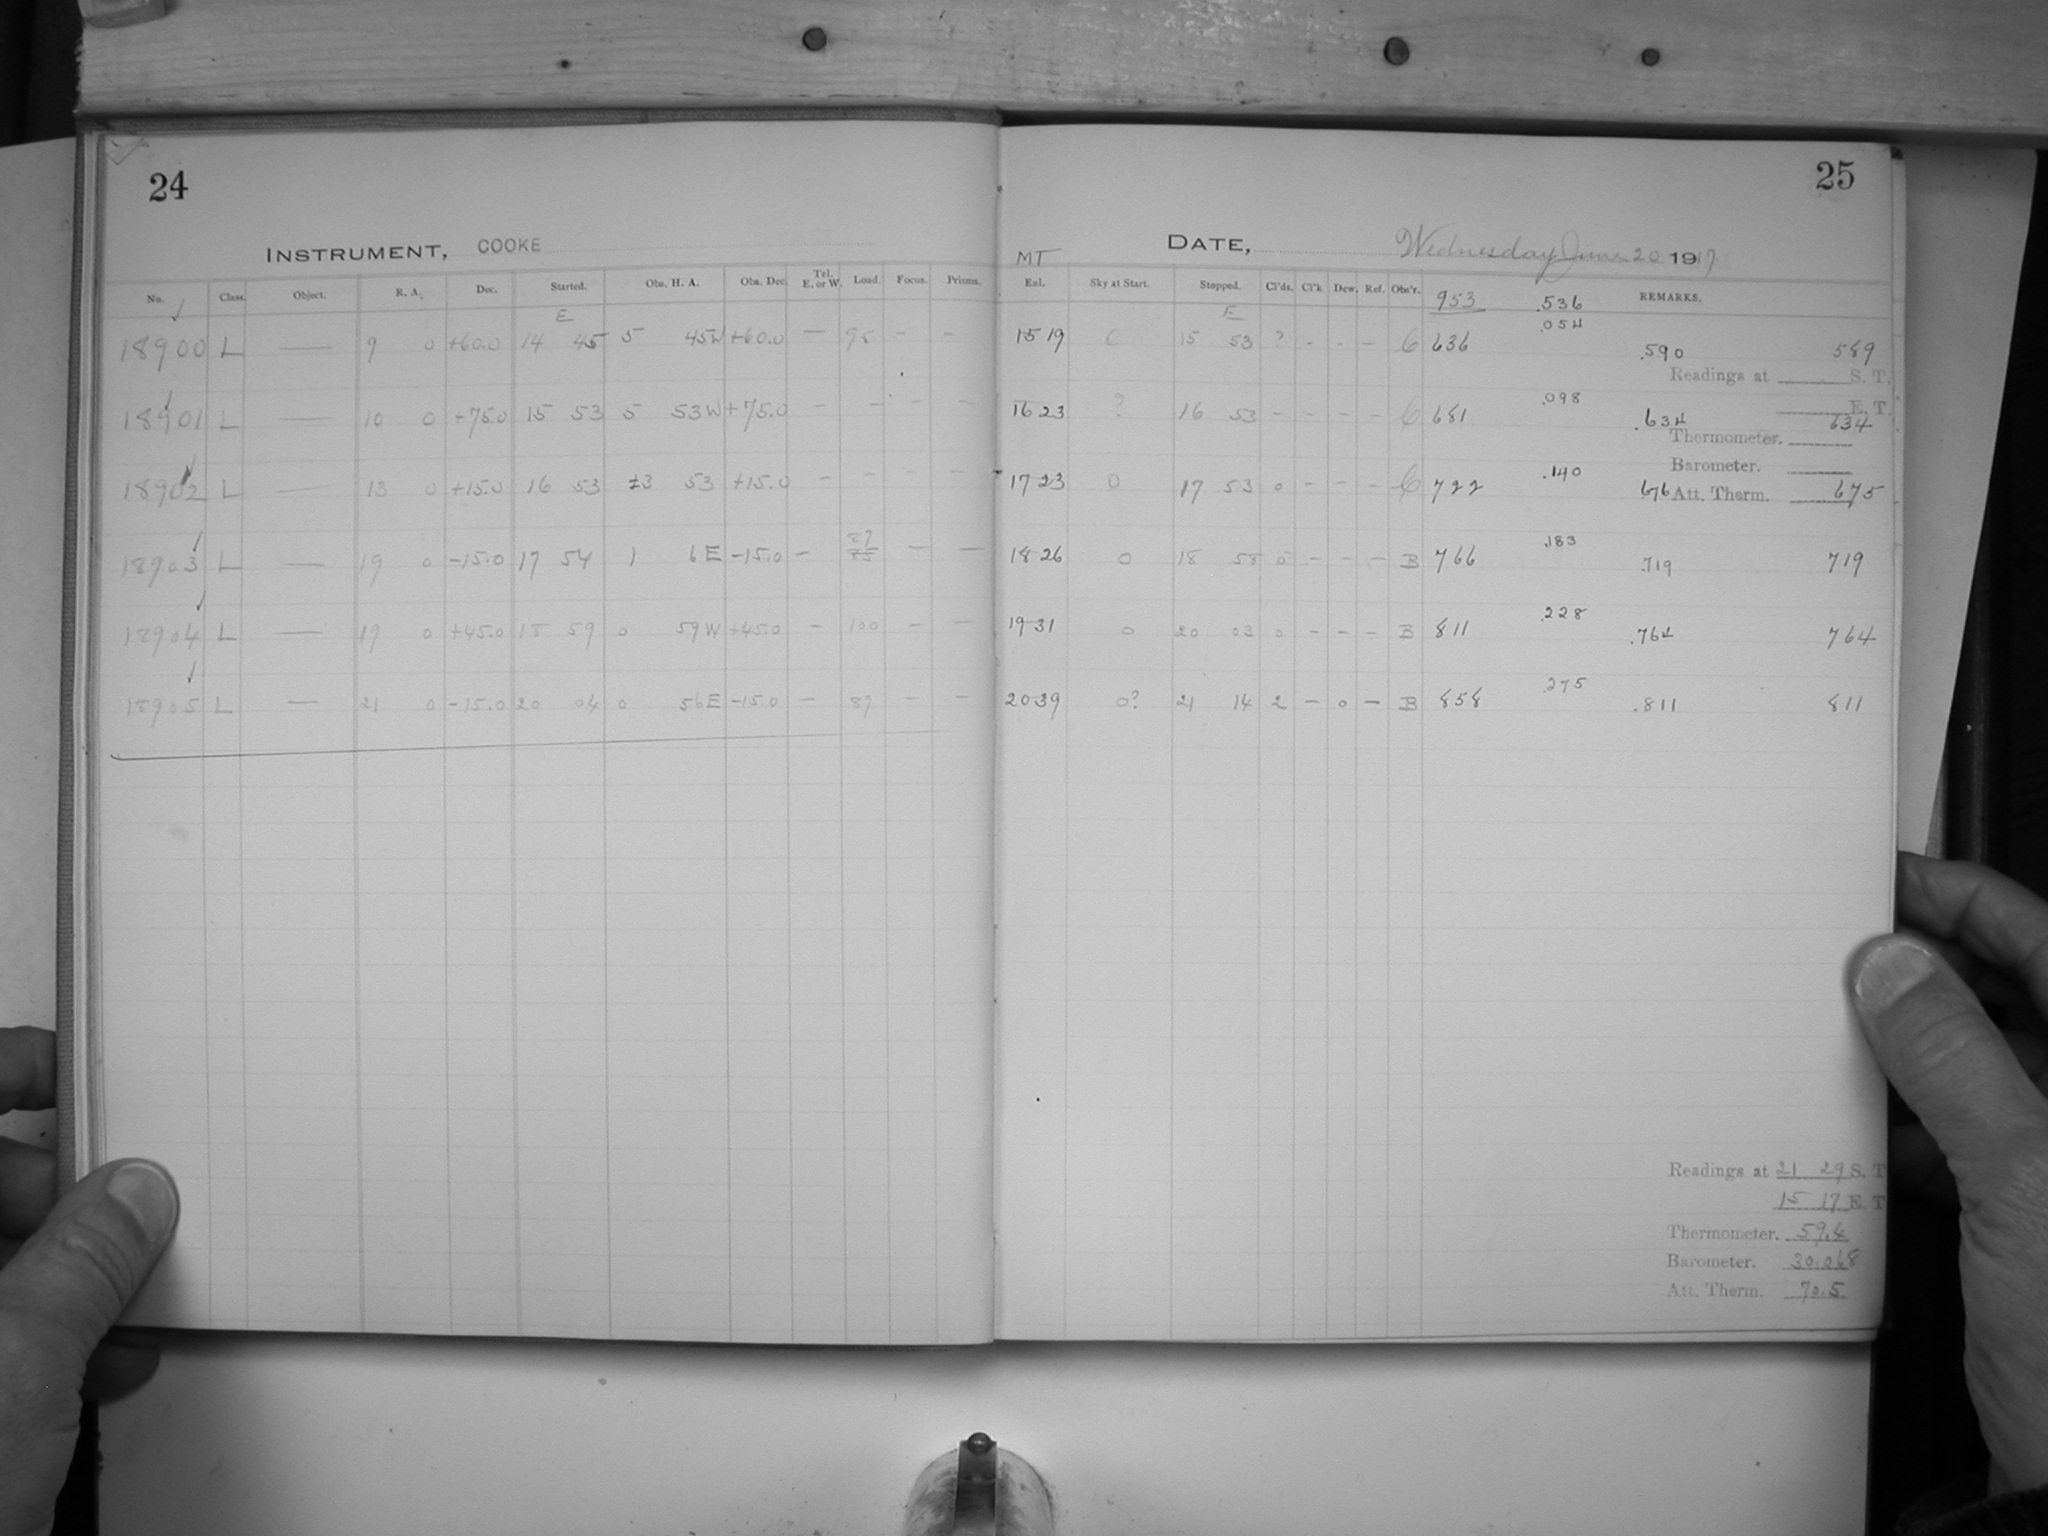 24
INSTRUMENT, COOKE
No. Class. Object. R. A. Dec. Started. Obs. H. A. Obs. Dec. Tel. E. or W. Load. Focus. Prisms.
E
18900 L — 9 0 +60.0 14 45 5 45W +60.0 — 95 - -
18901 L — 10 0 +75.0 15 53 5 53W +75.0 - - - -
18902 L — 13 0 +15.0 16 53 ±3 53 +15.0 - - - -
18903 L — 19 0 -15.0 17 54 1 6E -15.0 - 87 85 - -
18904 L — 19 0 +45.0 18 59 0 59W +45.0 - 100 - -
18905 L — 21 0 -15.0 20 04 0 56E -15.0 - 87 - -
25
DATE, Wednesday June 20 1917
MT
Eul. Sky at Start. Stopped. Cl'ds. Cl'k Dew. Ref. Obs'r. 953 .536 REMARKS.
E
15 19 C 15 53 ? - - - C 636 .054 .590 589
Readings at S. T.
16 23 ? 16 53 - - - - C 681 .098 .634 634
E. T.
Thermometer.
Barometer.
17 23 0 17 53 0 - - - C 722 .140 676 675
Att. Therm.
18 26 0 18 58 0 - - - B 766 .183 .719 719
19 31 0 20 03 0 - - - B 811 .228 .764 764
20 39 0? 21 14 2 - 0 - B 858 .275 .811 811
Readings at 21 29 S. T
15 17 E. T
Thermometer. 59.4
Barometer. 30.068
Att. Therm. 72.5